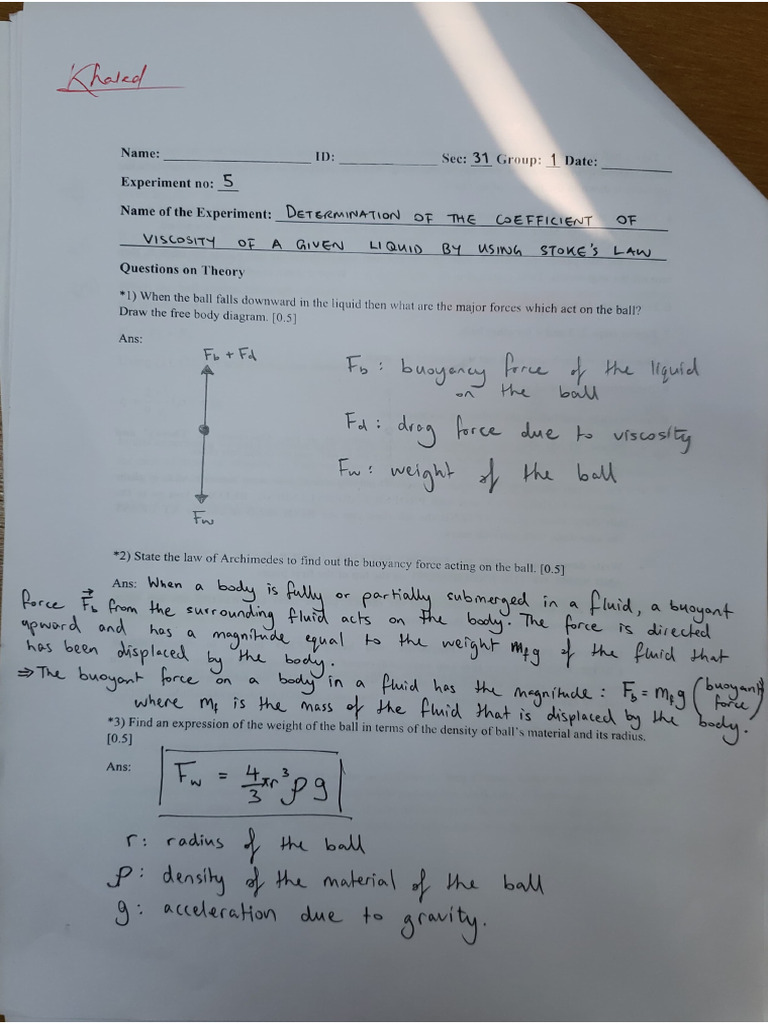 Khaled
Name: ID: Sec: 31 Group: 1 Date:
Experiment no: 5
Name of the Experiment: DETERMINATION OF THE COEFFICIENT OF
VISCOSITY OF A GIVEN LIQUID BY USING STOKE'S LAW
Questions on Theory
*1) When the ball falls downward in the liquid then what are the major forces which act on the ball?
Draw the free body diagram. [0.5]
Ans:
Fb + Fd
Fw
Fb : buoyancy force of the liquid
on the ball
Fd : drag force due to viscosity
Fw : weight of the ball
*2) State the law of Archimedes to find out the buoyancy force acting on the ball. [0.5]
Ans: When a body is fully or partially submerged in a fluid, a buoyant
force F⃗b from the surrounding fluid acts on the body. The force is directed
upward and has a magnitude equal to the weight mfg of the fluid that
has been displaced by the body.
⇒ The buoyant force on a body in a fluid has the magnitude : Fb = mfg (buoyant force)
where mf is the mass of the fluid that is displaced by the body.
*3) Find an expression of the weight of the ball in terms of the density of ball's material and its radius.
[0.5]
Ans:
Fw = 4/3 πr³ ρg
r : radius of the ball
ρ : density of the material of the ball
g : acceleration due to gravity.